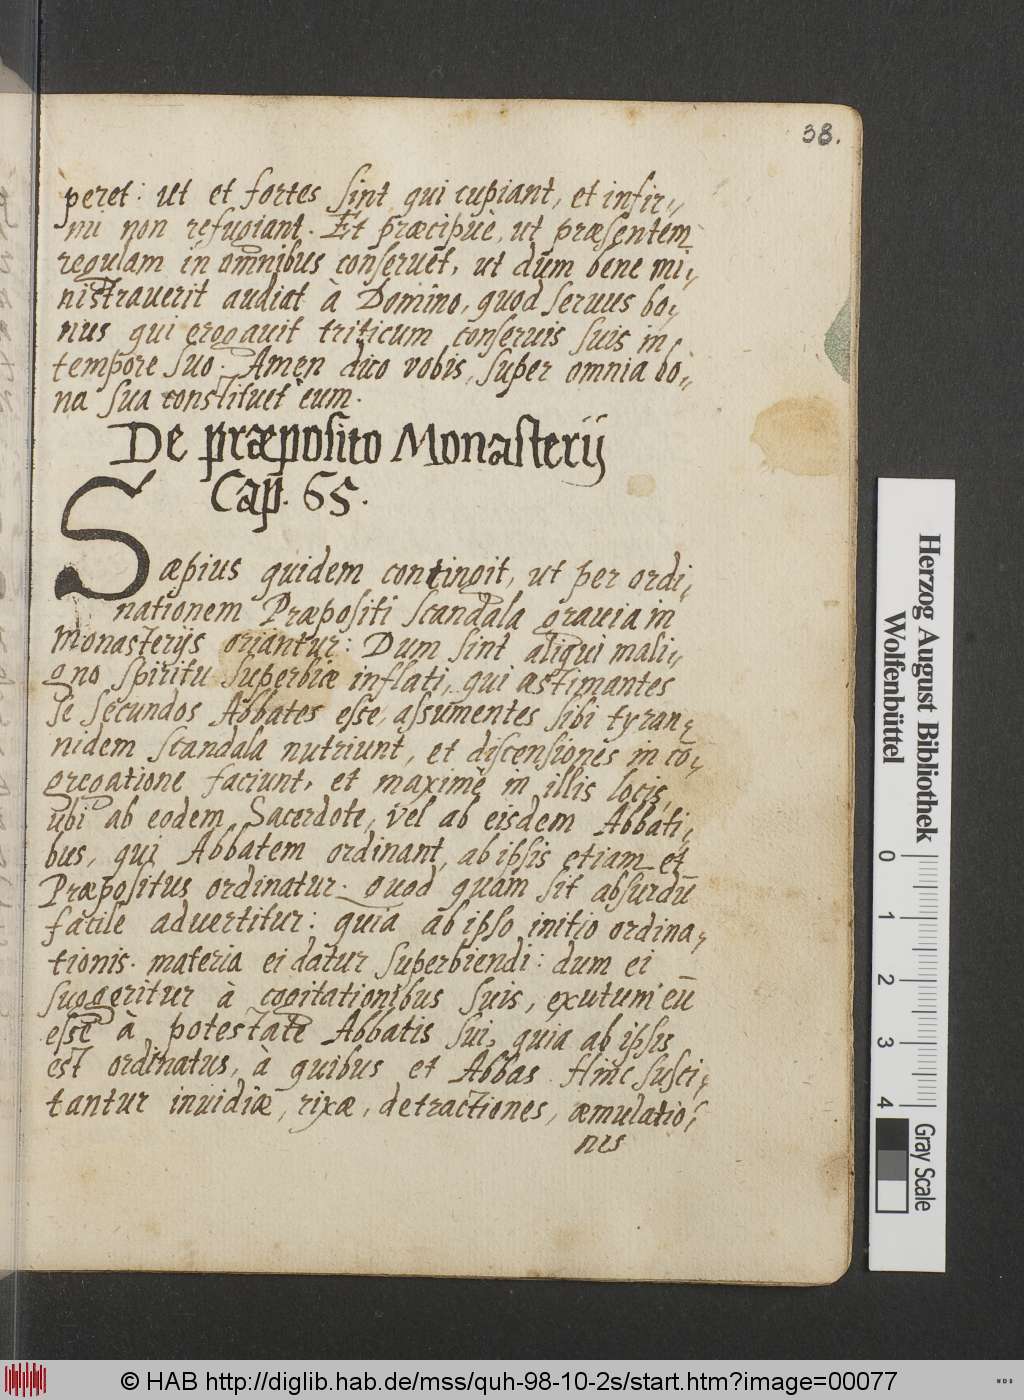 38.
peret: ut et fortes sint qui cupiant, et infir„
mi non refugiant. Et præcipuè, ut præsentem
regulam in omnibus conseruēt, ut dum bene mi„
nistrauerit audiat à Domino, quod seruus bo„
nus qui erogauit triticum conseruis suis in
tempore suo. Amen dico vobis, super omnia bo„
na sua constituet eum.
De præposito Monasterij
Cap. 65.
Sæpius quidem contingit, ut per ordi„
nationem Præpositi scandala grauia in
Monasterijs oriantur: Dum sint aliqui mali„
gno spiritu superbiæ inflati, qui æstimantes
se secundos Abbates esse, assumentes sibi tyran„
nidem scandala nutriunt, et discensiones in cō„
gregatione faciunt, et maximè in illis locis,
ubi ab eodem Sacerdote, vel ab eisdem Abbati„
bus, qui Abbatem ordinant, ab ipsis etiam et
Præpositus ordinatur. quod quam sit absurdū
facile advertitur: quia ab ipso initio ordina„
tionis. materia ei datur superbiendi: dum ei
suggeritur à cogitationibus suis, exutum eū
esse à potestate Abbatis sui, quia ab ipsis
est ordinatus, à quibus et Abbas. Hinc susci„
tantur inuidiæ, rixæ, detractiones, æmulatio„
nes
Herzog August Bibliothek
Wolfenbüttel
0 1 2 3 4
Gray Scale
© HAB http://diglib.hab.de/mss/quh-98-10-2s/start.htm?image=00077